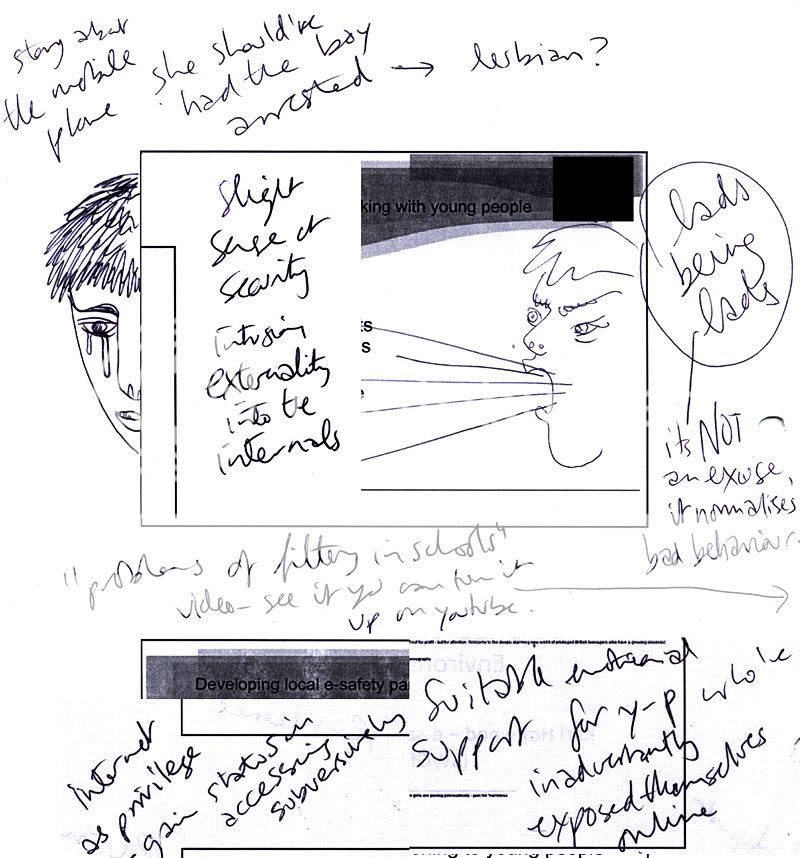 story about
the mobile
phone
she should've
had the boy
arrested → lesbian?
slight
sense of
security
intruding
externality
into the
internals
king with young people
lads
being
lads
its NOT
an excuse,
it normalises
bad behaviour.
"problems of filtering in schools"
video - see if you can turn it
up on youtube.
Developing local e-safety pa
internet
as privilege
gain status in
accessing
subversively
Suitable emotional
support for y-p who've
inadvertantly
exposed themselves
online
ening to young people